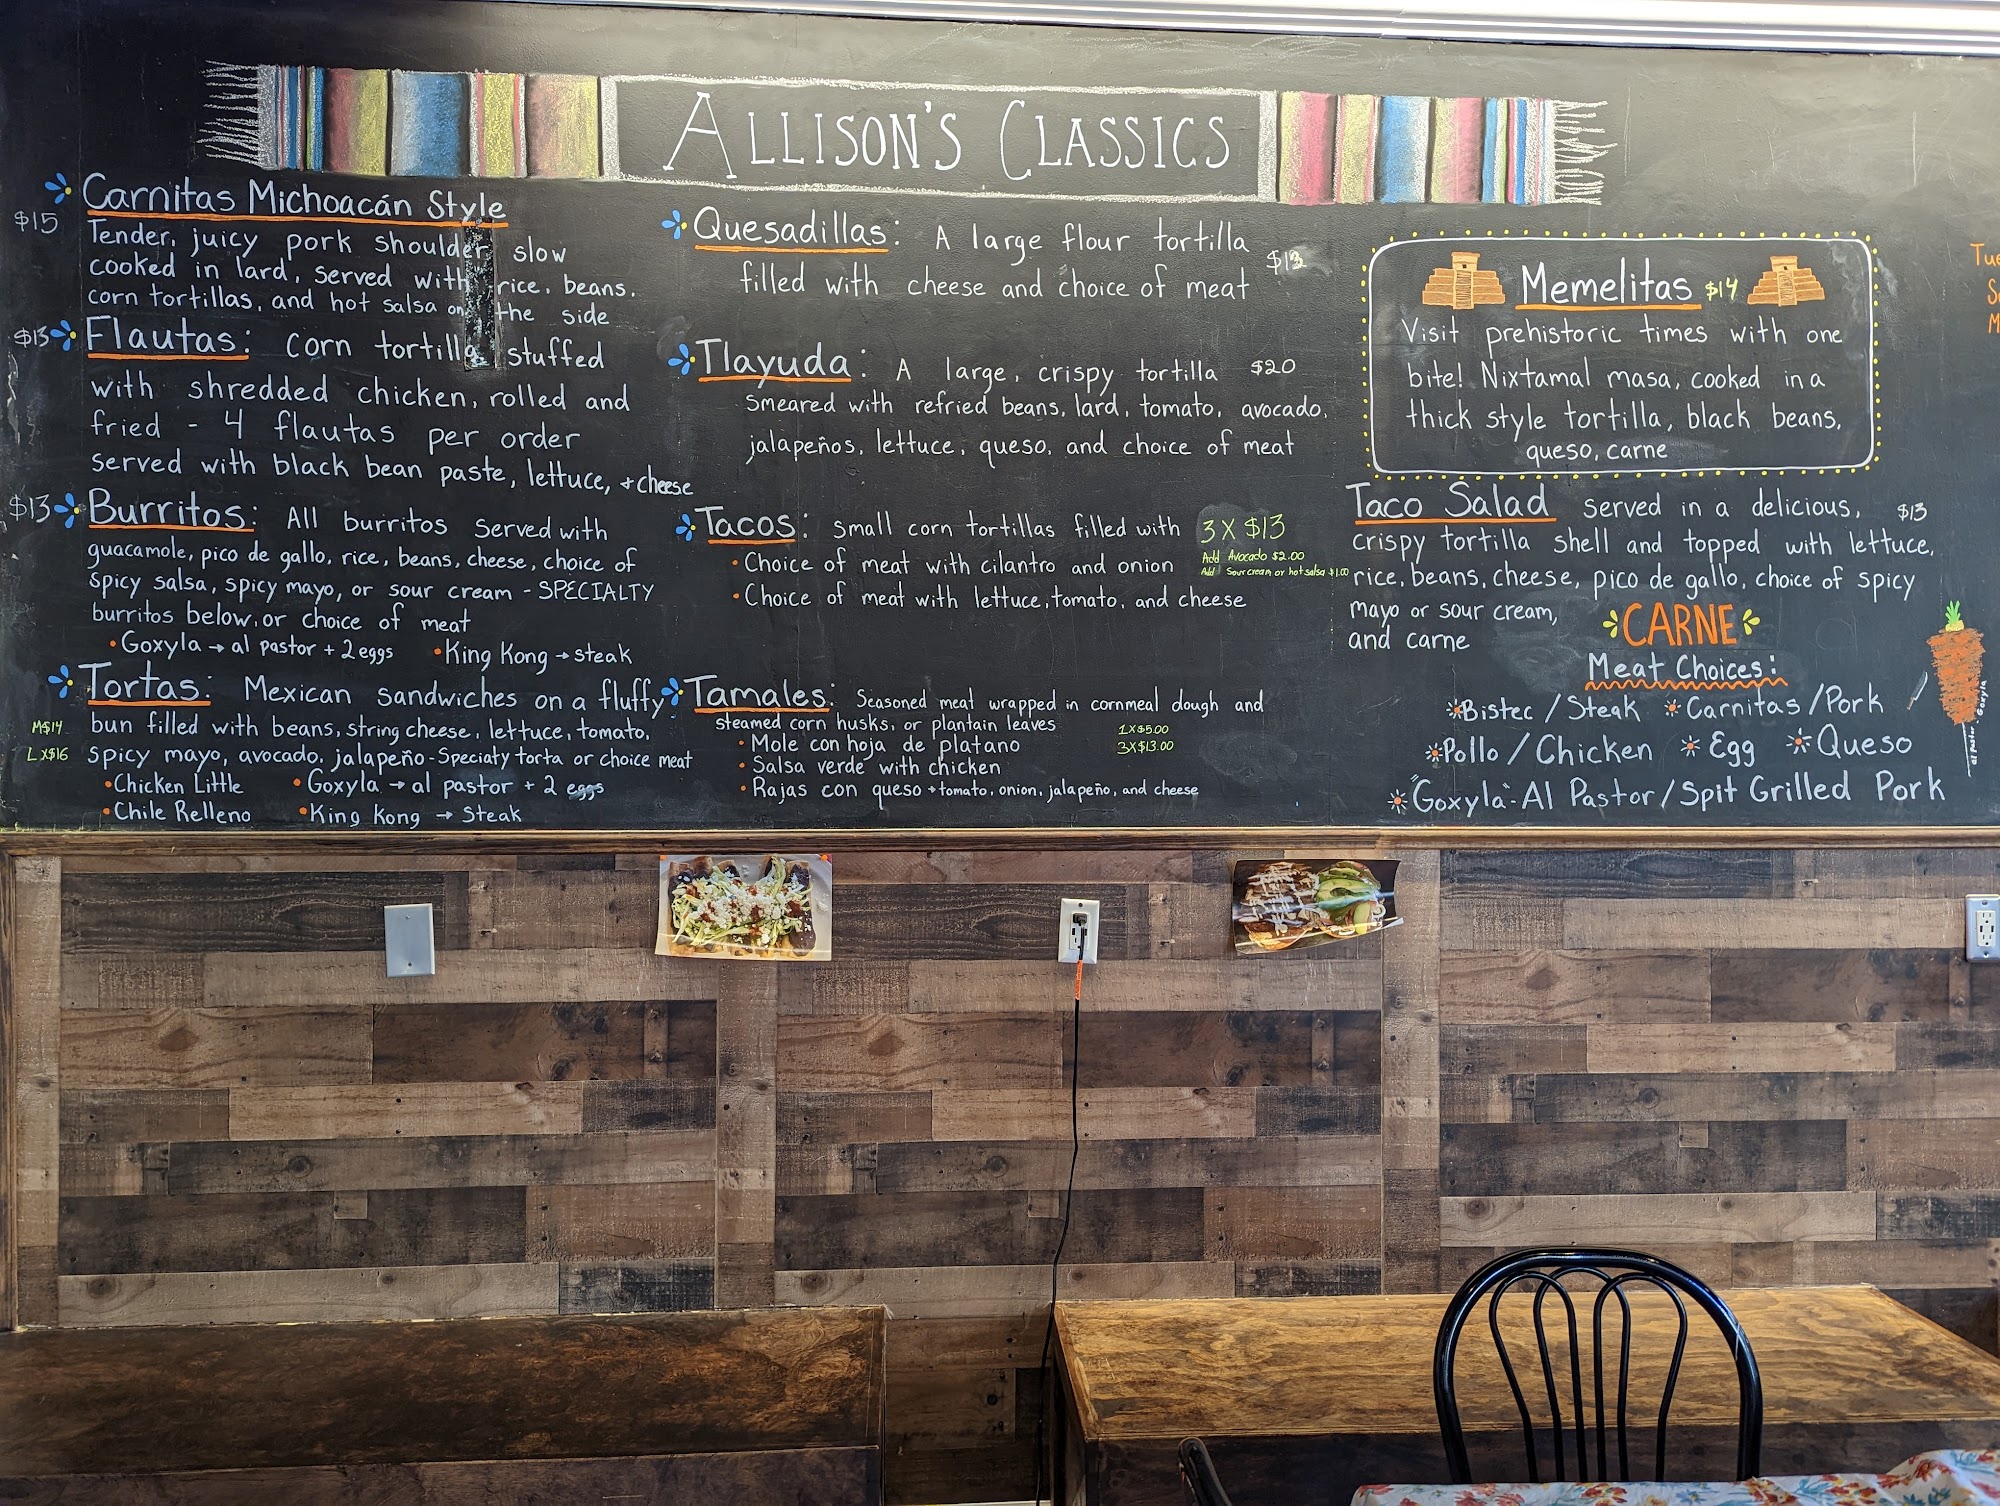 ALLISON'S CLASSICS
Carnitas Michoacán Style
$15
Tender, juicy pork shoulder slow
cooked in lard, served with rice, beans,
corn tortillas, and hot salsa on the side
$13 Flautas: Corn tortilla stuffed
with shredded chicken, rolled and
fried - 4 flautas per order
served with black bean paste, lettuce, + cheese
$13 Burritos: All burritos served with
guacamole, pico de gallo, rice, beans, cheese, choice of
spicy salsa, spicy mayo, or sour cream - SPECIALTY
burritos below, or choice of meat
• Goxyla → al pastor + 2 eggs • King Kong → steak
Tortas: Mexican sandwiches on a fluffy
M$14 bun filled with beans, string cheese, lettuce, tomato,
LX$16 spicy mayo, avocado, jalapeño - Specialty torta or choice meat
• Chicken Little • Goxyla → al pastor + 2 eggs
• Chile Relleno • King Kong → Steak
Quesadillas: A large flour tortilla
filled with cheese and choice of meat
Tlayuda: A large, crispy tortilla $20
smeared with refried beans, lard, tomato, avocado,
jalapeños, lettuce, queso, and choice of meat
Tacos: small corn tortillas filled with 3 X $13
• Choice of meat with cilantro and onion
Add Avocado $2.00
Add Sour cream or hot salsa $1.00
• Choice of meat with lettuce, tomato, and cheese
Tamales: Seasoned meat wrapped in cornmeal dough and
steamed corn husks, or plantain leaves
1X$5.00
3X$13.00
• Mole con hoja de platano
• Salsa verde with chicken
• Rajas con queso → tomato, onion, jalapeño, and cheese
Memelitas $14
Visit prehistoric times with one
bite! Nixtamal masa, cooked in a
thick style tortilla, black beans,
queso, carne
Taco Salad served in a delicious, $13
crispy tortilla shell and topped with lettuce,
rice, beans, cheese, pico de gallo, choice of spicy
mayo or sour cream,
and carne
CARNE
Meat Choices:
Bistec / Steak Carnitas / Pork
Pollo / Chicken Egg Queso
"Goxyla" - Al Pastor / Spit Grilled Pork
al pastor "Goxyla"
Tue